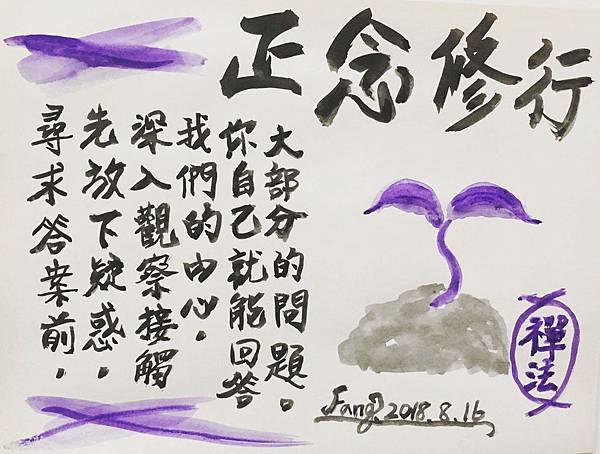 正念修行
尋求答案前，
先放下疑惑，
深入觀察接觸
我們的內心，
你自己就能回答
大部分的問題。
禪法
Fang 2018.8.16